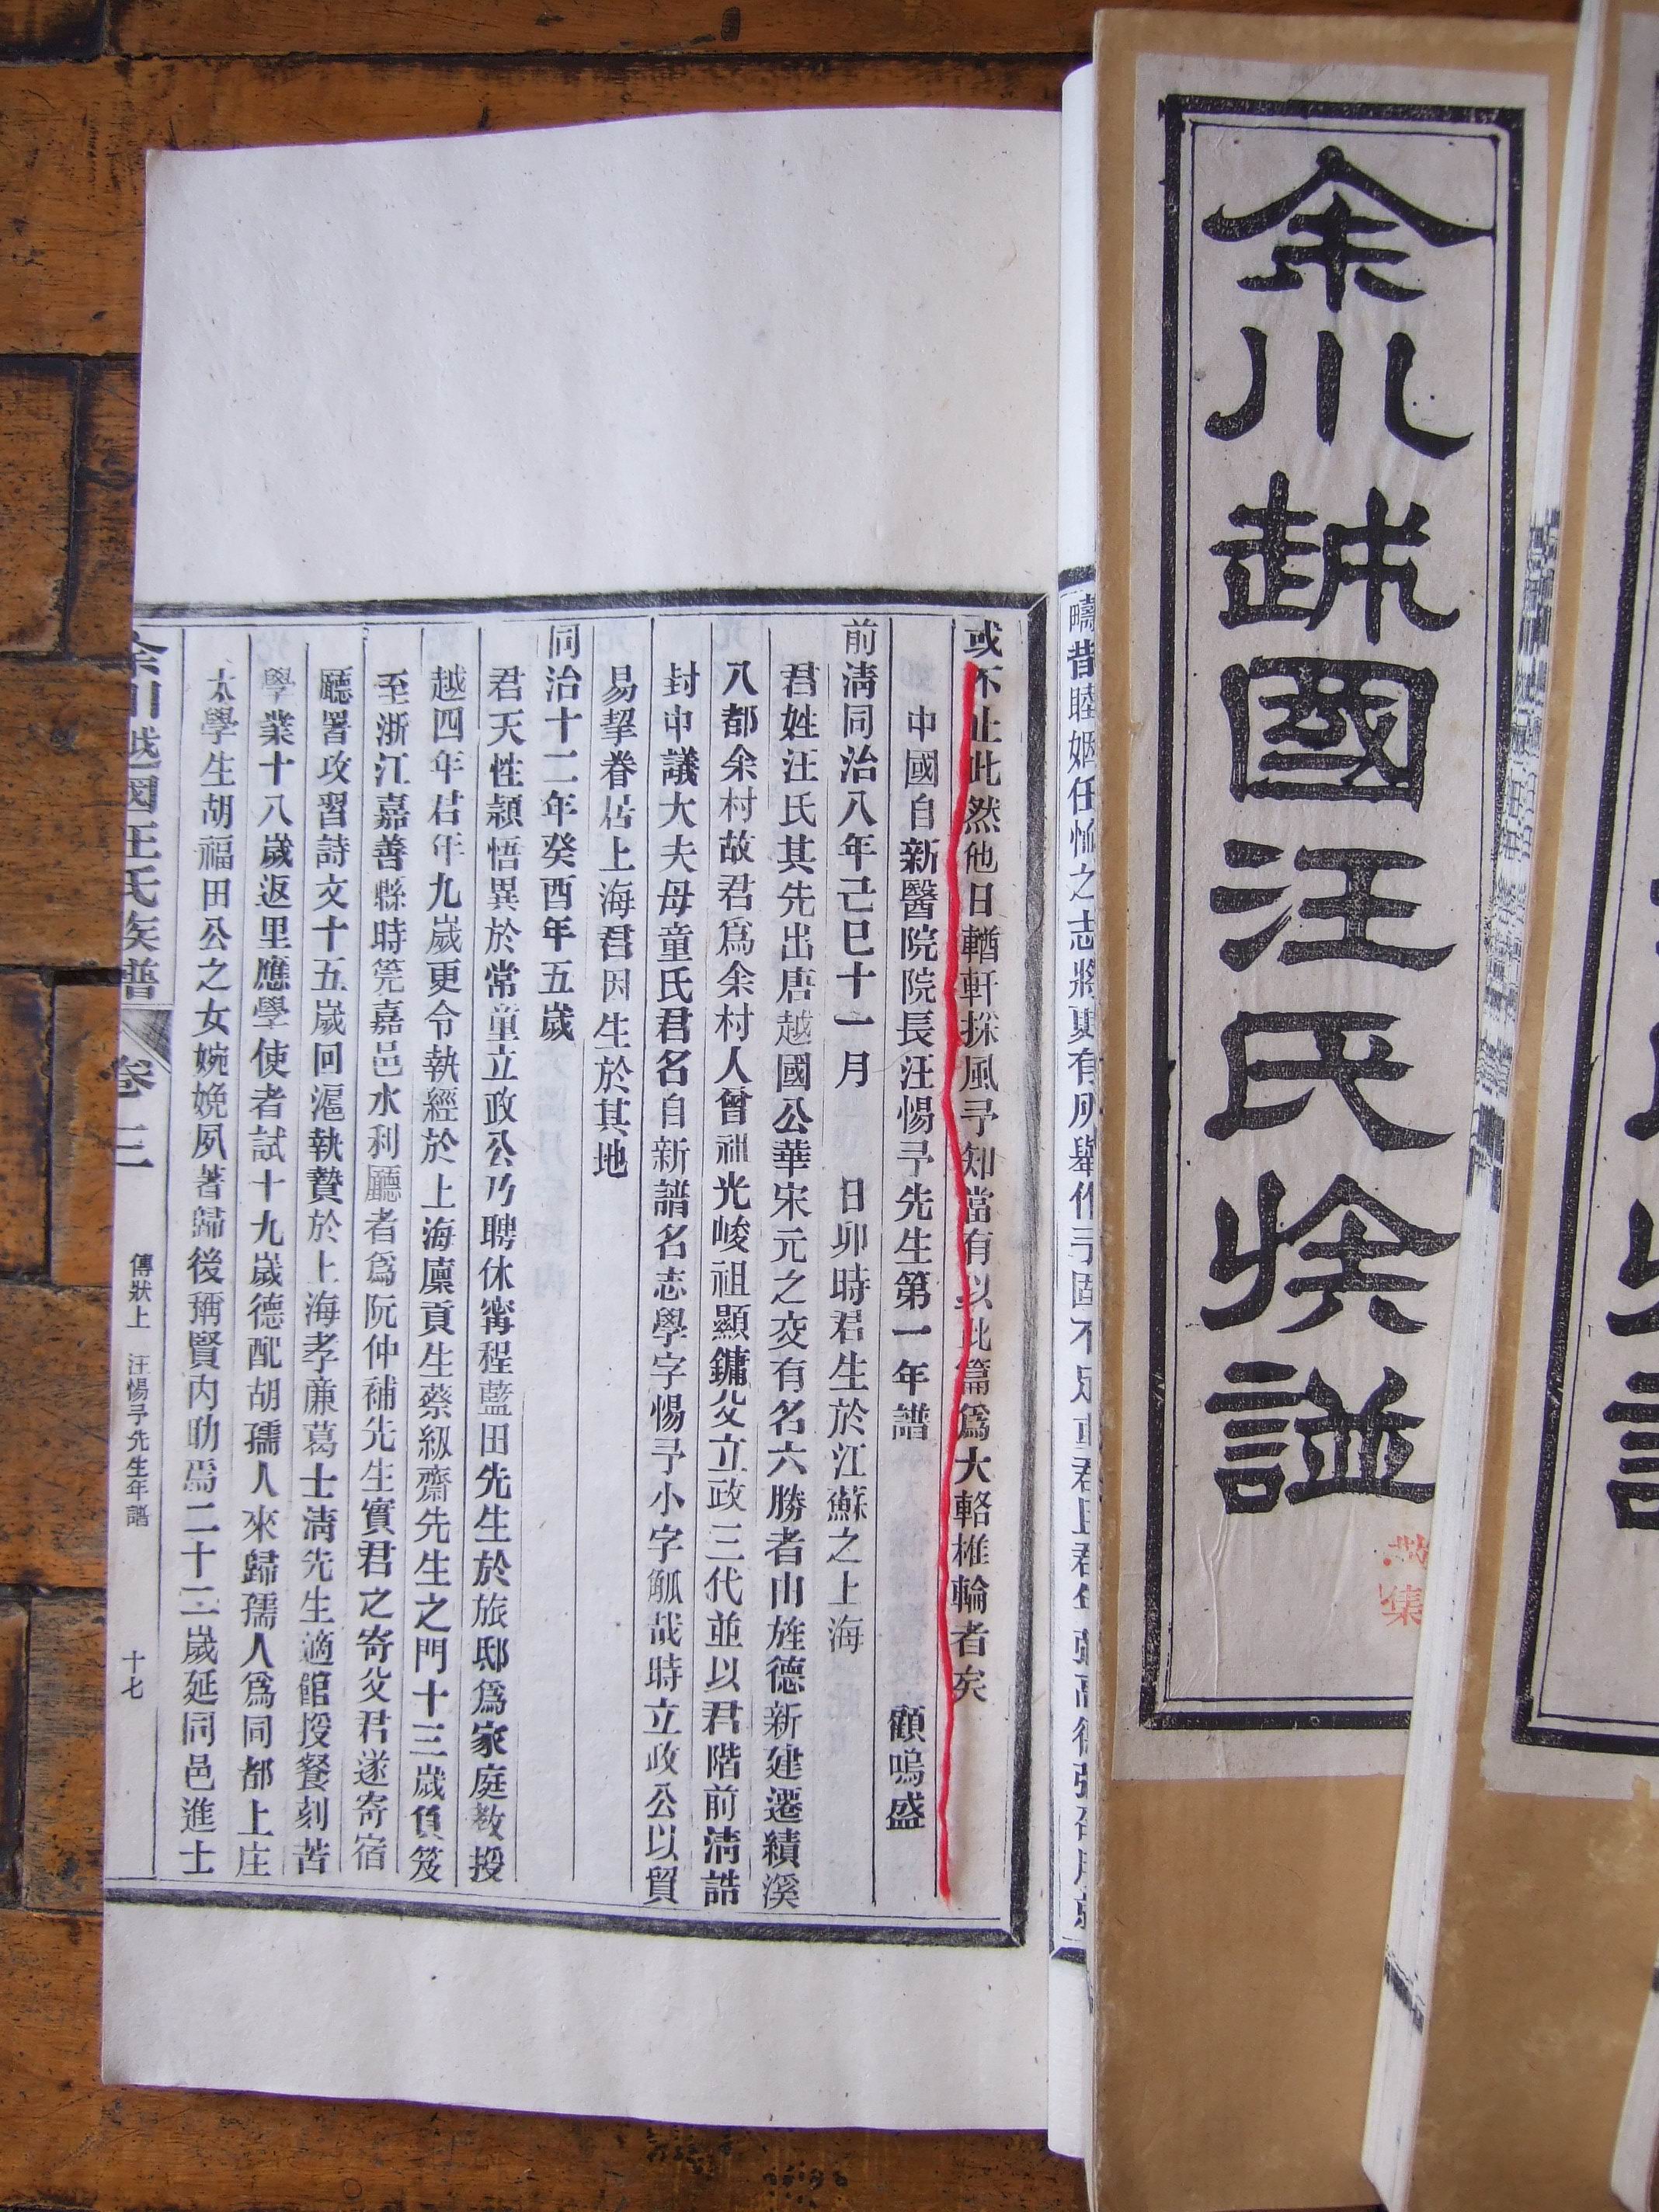 余川越國汪氏族譜
或不止此然他日輶軒採風予知當有以此篇爲大輅椎輪者矣
中國自新醫院院長汪惕予先生第一年譜 顧鳴盛
前清同治八年己巳十一月 日卯時君生於江蘇之上海
君姓汪氏其先出唐越國公華宋元之交有名六勝者由旌德新建遷績溪
八都余村故君爲余村人曾祖光峻祖顯鏞父立政三代並以君階前清誥
封中議大夫母童氏君名自新譜名志學字惕予小字觚哉時立政公以貿
易挈眷居上海君因生於其地
同治十二年癸酉年五歲
君天性穎悟異於常童立政公乃聘休甯程藍田先生於旅邸爲家庭教授
越四年君年九歲更令執經於上海廩貢生蔡紉齋先生之門十三歲負笈
至浙江嘉善縣時筦嘉邑水利廳者爲阮仲補先生實君之寄父君遂寄宿
廳署攻習詩文十五歲回滬執贄於上海孝廉葛士清先生適館授餐刻苦
學業十八歲返里應學使者試十九歲德配胡孺人來歸孺人爲同都上庄
太學生胡福田公之女婉娩夙著歸後稱賢內助焉二十二歲延同邑進士
余川越國汪氏族譜 卷三 傳狀上 汪惕予先生年譜 十七